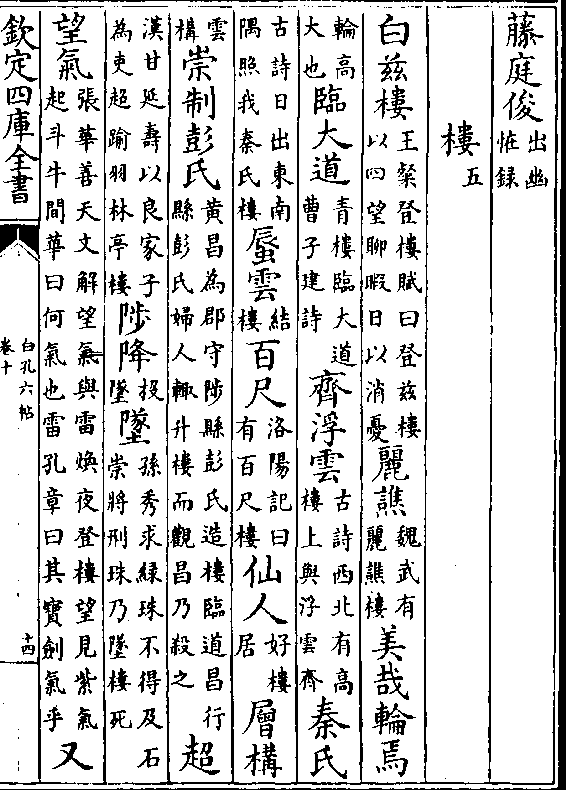 藤庭俊出幽恠録
樓五
白茲樓王粲登樓賦曰登茲樓以四望聊暇日以消憂麗譙魏武有麗譙樓美哉輪焉
輪高大也臨大道青樓臨大道曹子建詩齊浮雲古詩西北有高樓上與浮雲齊秦氏
古詩日出東南隅照我秦氏樓蜃雲結樓百尺洛陽記曰有百尺樓仙人好樓居層構
雲構崇制彭氏黄昌為郡守陟縣彭氏造樓臨道昌行縣彭氏婦人輙升樓而觀昌乃殺之超
漢甘延壽以良家子為吏超踰羽林亭樓陟降投墜墜孫秀求緑珠不得及石崇將刑珠乃墜樓死
望氣張華善天文解望氣與雷煥夜登樓望見紫氣起斗牛間華曰何氣也雷孔章曰其寶劍氣乎又
欽定四庫全書
白孔六帖
卷十
十四